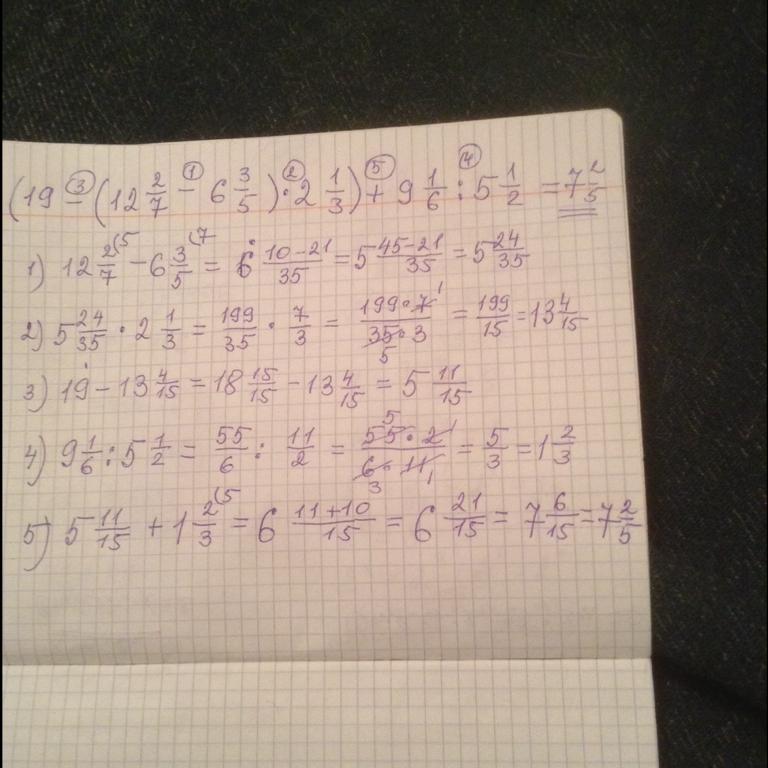 (19 - ③ (12 2/7 - ① 6 3/5) · ② 2 1/3) + ⑤ 9 1/6 : ④ 5 1/2 = 7 2/5
1) 12 2/7 (5 - 6 3/5 (7 = 6 (10-21)/35 = 5 (45-21)/35 = 5 24/35
2) 5 24/35 · 2 1/3 = 199/35 · 7/3 = (199·7 1)/(35 5·3) = 199/15 = 13 4/15
3) 19 - 13 4/15 = 18 15/15 - 13 4/15 = 5 11/15
4) 9 1/6 : 5 1/2 = 55/6 : 11/2 = (55 5·2 1)/(6 3·11 1) = 5/3 = 1 2/3
5) 5 11/15 + 1 2/3 (5 = 6 (11+10)/15 = 6 21/15 = 7 6/15 = 7 2/5